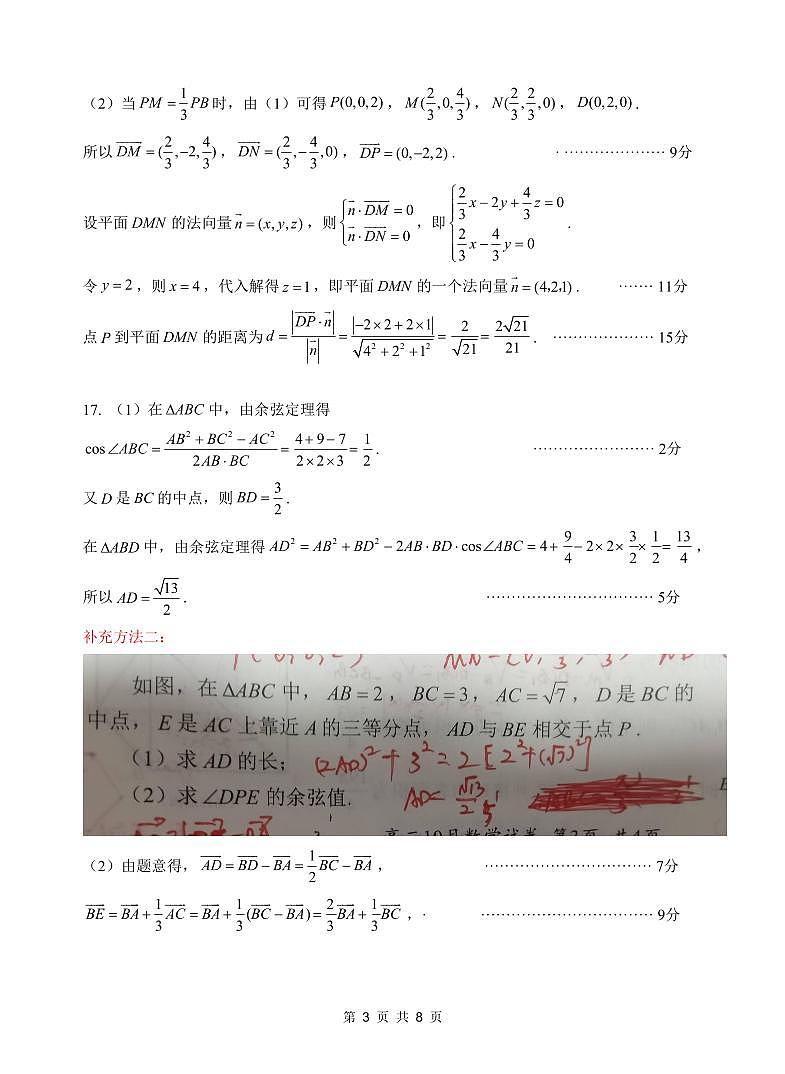 （2）当 PM = 1/3 PB 时，由（1）可得 P(0,0,2)，M(2/3,0,4/3)，N(2/3,2/3,0)，D(0,2,0)．
所以 DM = (2/3,−2,4/3)，DN = (2/3,−4/3,0)，DP = (0,−2,2)．· ···················· 9分
设平面 DMN 的法向量 n = (x,y,z)，则 { n·DM = 0, n·DN = 0 ，即 { 2/3 x − 2y + 4/3 z = 0, 2/3 x − 4/3 y = 0 ．
令 y = 2，则 x = 4，代入解得 z = 1，即平面 DMN 的一个法向量 n = (4,2,1)． ······· 11分
点 P 到平面 DMN 的距离为 d = |DP·n| / |n| = |−2×2+2×1| / √(4²+2²+1²) = 2/√21 = 2√21/21． ···················· 15分
17. （1）在 ΔABC 中，由余弦定理得
cos∠ABC = (AB² + BC² − AC²) / (2AB·BC) = (4+9−7) / (2×2×3) = 1/2． ························ 2分
又 D 是 BC 的中点，则 BD = 3/2．
在 ΔABD 中，由余弦定理得 AD² = AB² + BD² − 2AB·BD·cos∠ABC = 4 + 9/4 − 2×2×3/2×1/2 = 13/4，
所以 AD = √13/2． ································· 5分
补充方法二：
如图，在 ΔABC 中，AB = 2，BC = 3，AC = √7，D 是 BC 的
中点，E 是 AC 上靠近 A 的三等分点，AD 与 BE 相交于点 P．
（1）求 AD 的长； (2AD)² + 3² = 2[2² + (√7)²]
（2）求 ∠DPE 的余弦值． AD = √13/2
（2）由题意得，AD = BD − BA = 1/2 BC − BA， ································· 7分
BE = BA + 1/3 AC = BA + 1/3 (BC − BA) = 2/3 BA + 1/3 BC，· ·································· 9分
第 3 页 共 8 页